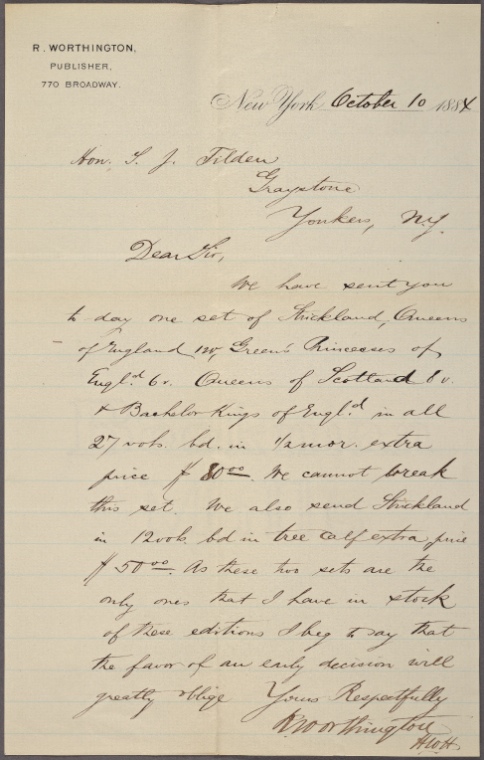 R. WORTHINGTON,
PUBLISHER,
770 BROADWAY.
New York October 10 1884
Hon. S. J. Tilden
Graystone
Yonkers, N.Y.
Dear Sir,
We have sent you
to day one set of Strickland, Queens
of England Green's Princesses of
Engl.d 6 v. Queens of Scotland 8 v.
& Bachelor Kings of Engl.d in all
27 vols. bd. in ½ mor. extra
price $ 80 00. We cannot break
this set. We also send Strickland
in 12 vols. bd in tree calf extra, price
$ 50 00. As these two sets are the
only ones that I have in stock
of these editions I beg to say that
the favor of an early decision will
greatly oblige Yours Respectfully
R. Worthington